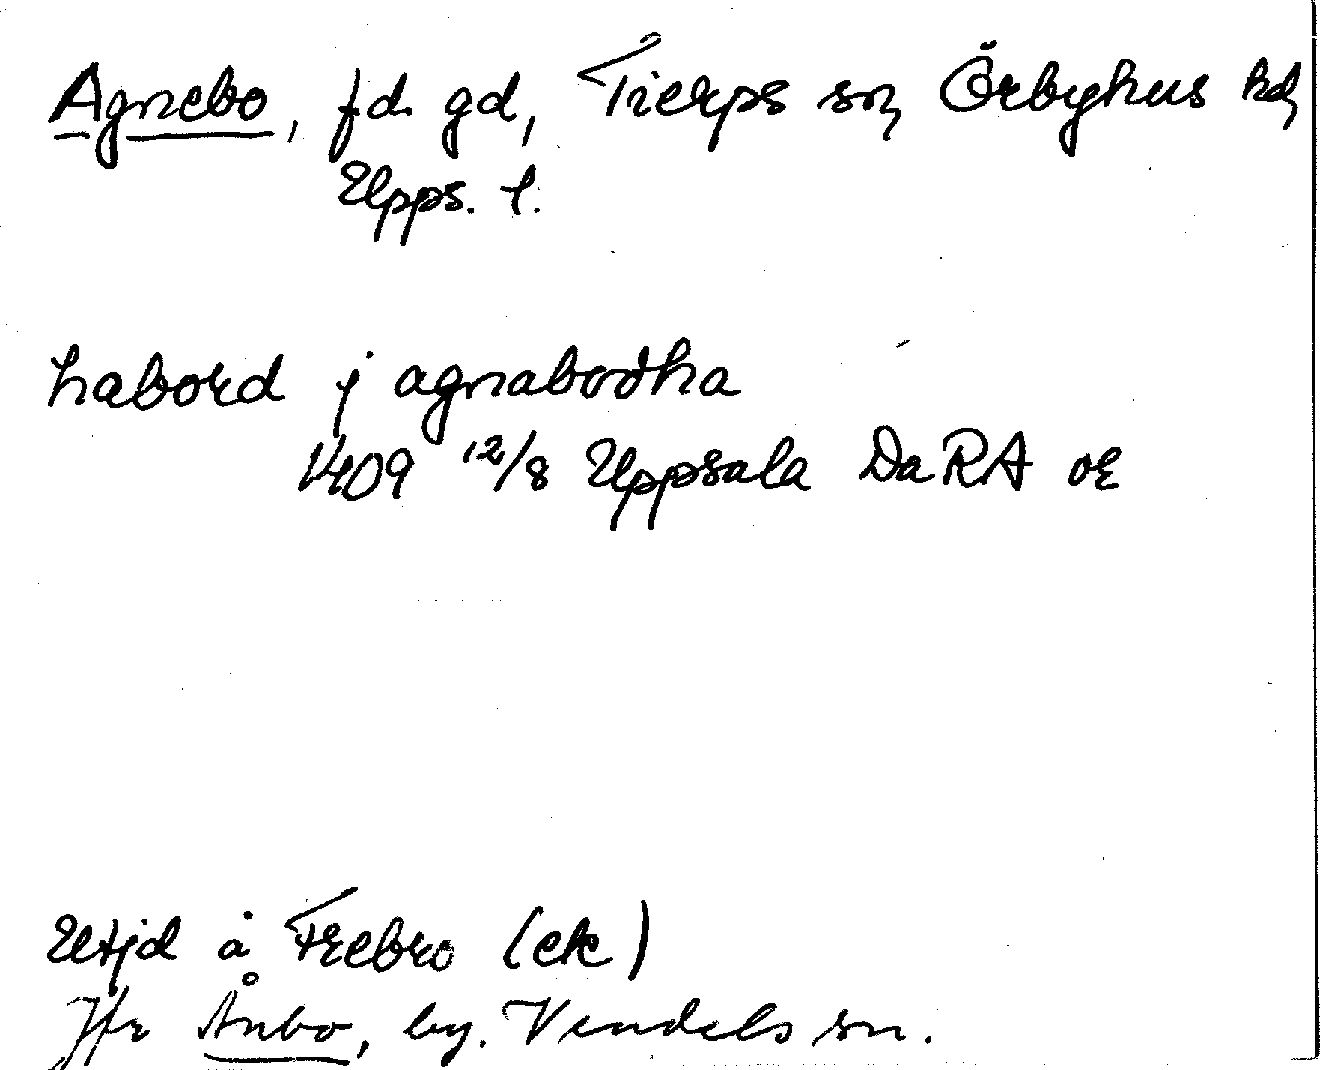 Agnebo, fd. gd, Tierps sn, Örbyhus hd,
Upps. l.
habord j agnabodha
1409 12/8 Uppsala DaRA or
Utjd å Frebro (ek)
Jfr Ånbo, by. Vendels sn.